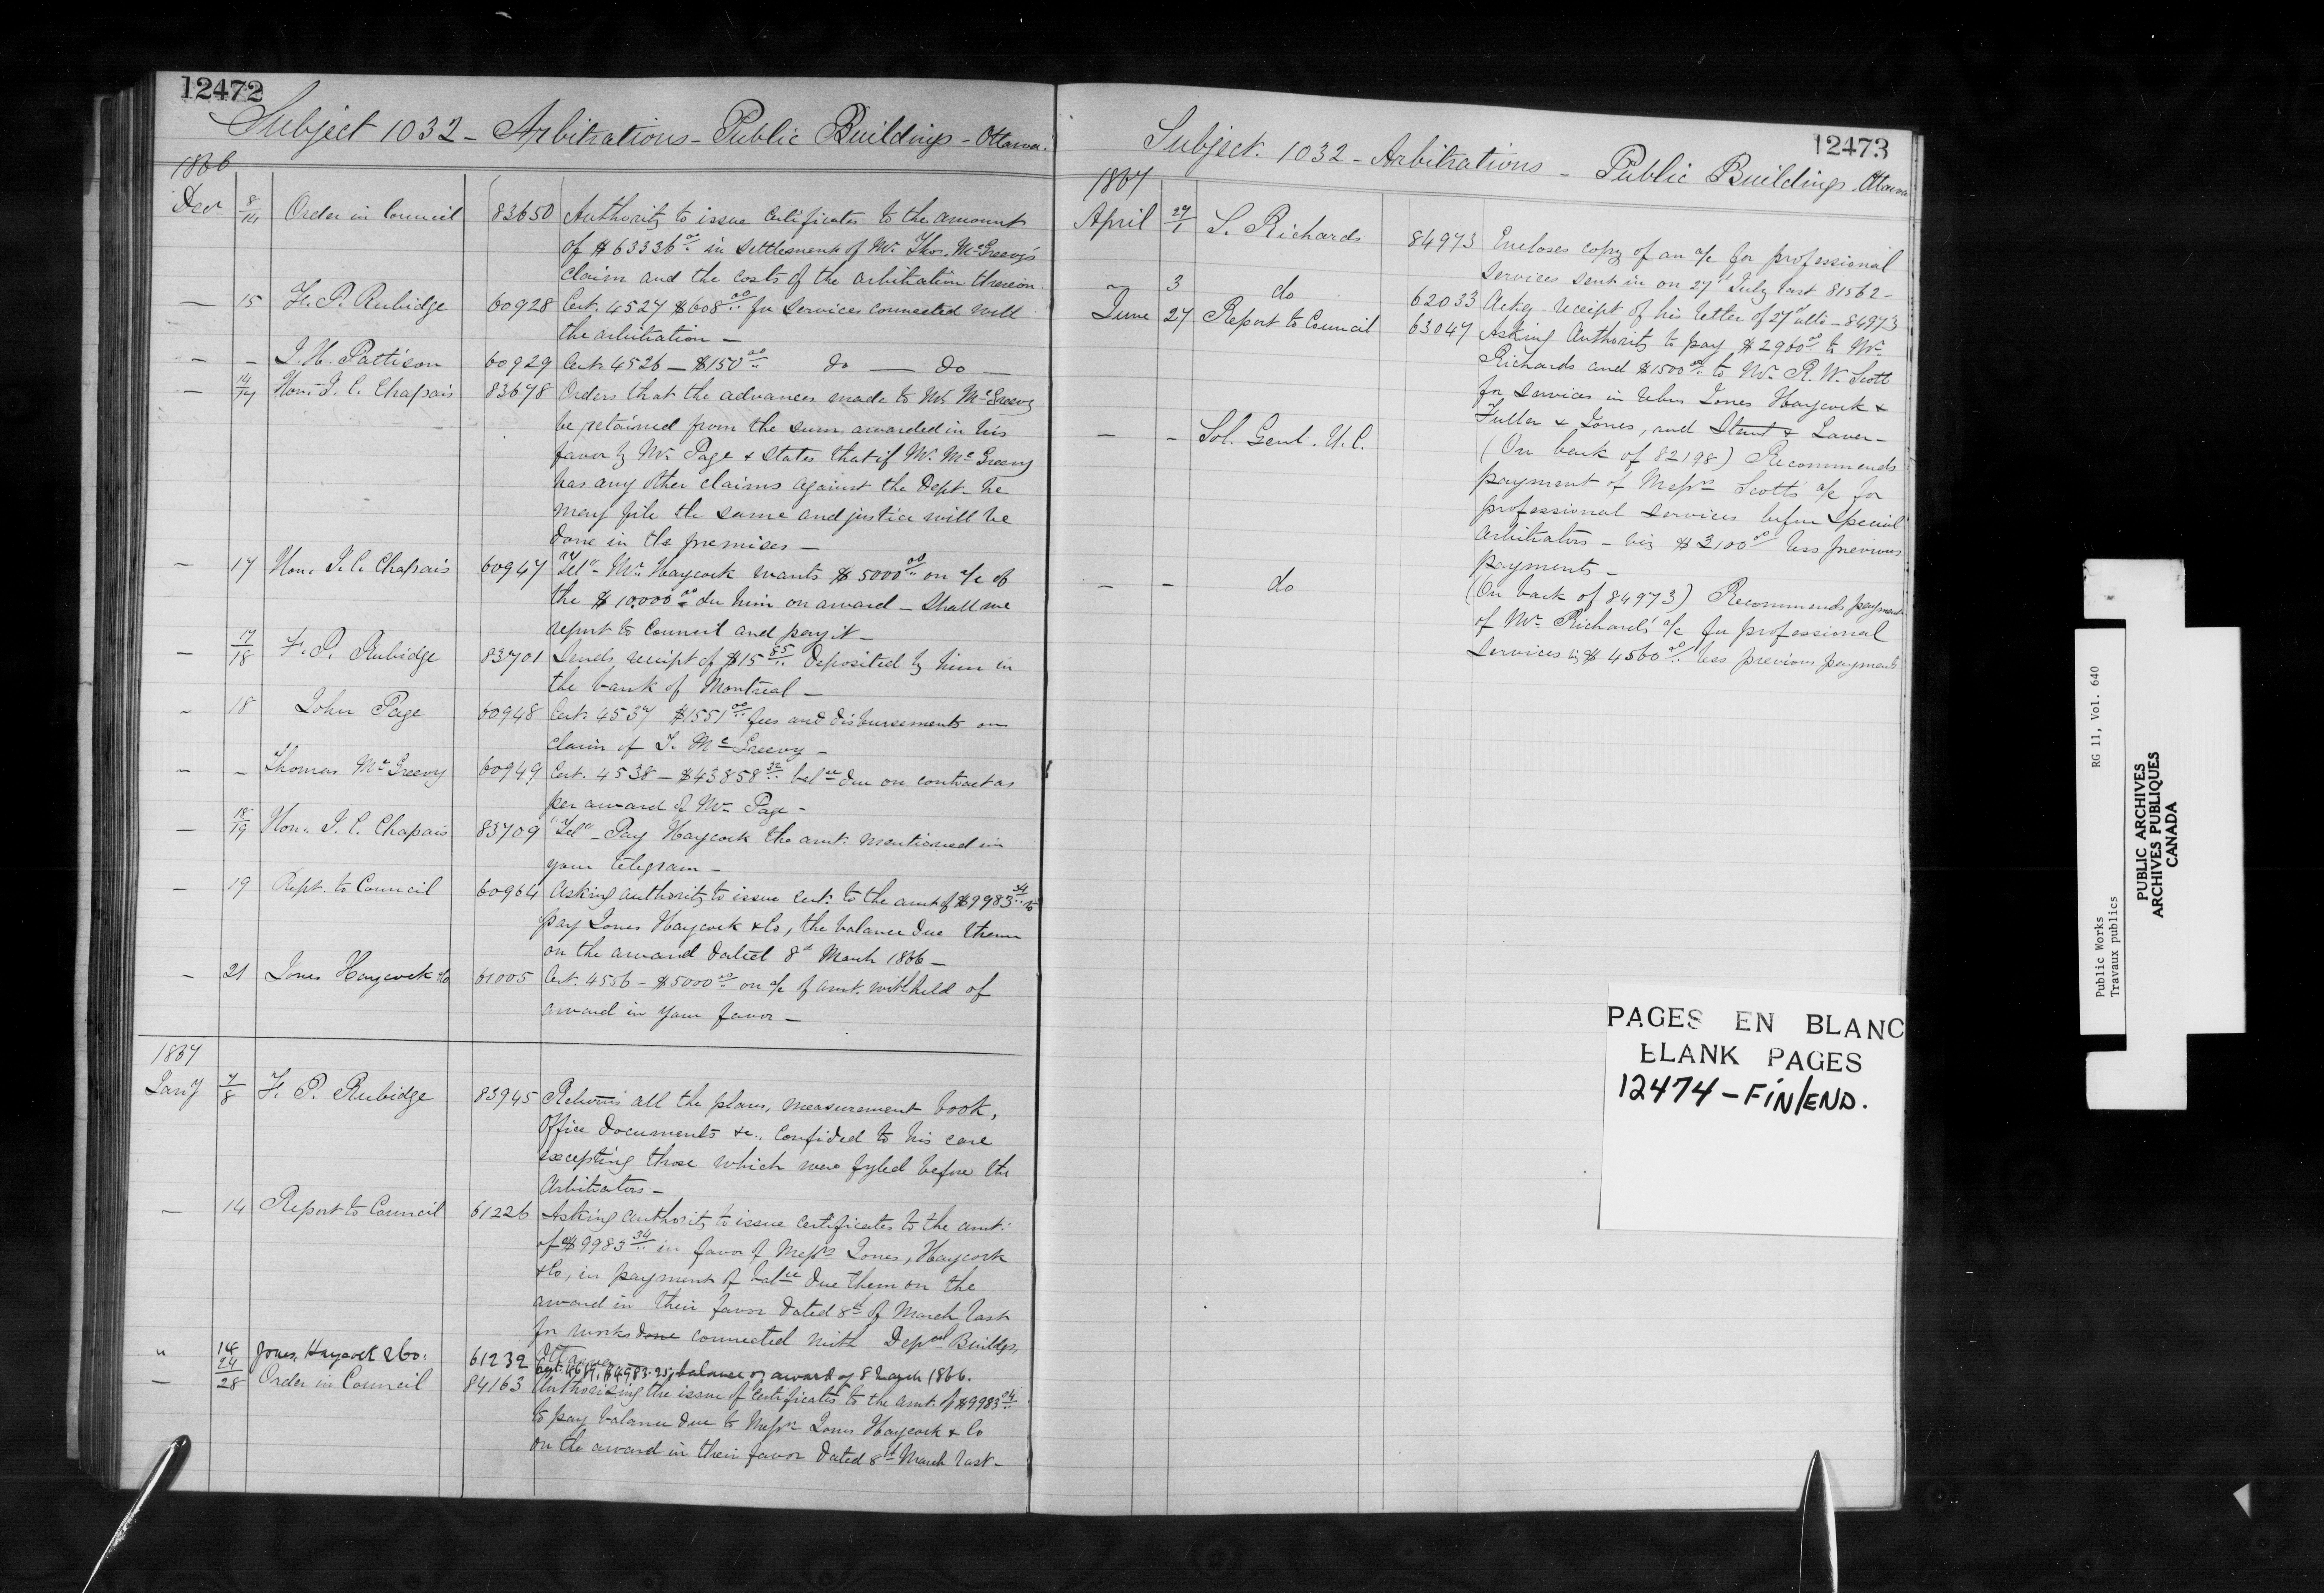 12472
Subject 1032 - Arbitrations - Public Buildings - Ottawa.
1866
Dec 8/14 Order in Council 83650 Authority to issue Certificates to the amount
of $63336.00 in settlement of Mr. Thos. McGreevy's
claim and the costs of the arbitration thereon.
— 15 F. P. Rubidge 60928 Cert. 4527 $608.00 for services connected with
the arbitration —
— — J. H. Pattison 60929 Cert. 4526 — $150.00 do — do —
— 14/17 Hon. J. C. Chapais 83678 Orders that the advances made to Mr McGreevy
be retained from the sum awarded in his
favor by Mr. Page & States that if Mr. McGreevy
has any other claims against the Dept. he
may file the same and justice will be
done in the premises —
— 17 Hon. J. C. Chapais 60947 "Tel" - Mr. Haycock wants $5000.00 on a/c of
the $10,000.00 due him on award — Shall we
report to Council and pay it —
— 17/18 F. P. Rubidge 83701 Sends receipt of $15.85 deposited by him in
the bank of Montreal —
— 18 John Page 60948 Cert. 4537 $1551.00 fees and disbursements on
claim of T. McGreevy —
— — Thomas McGreevy 60949 Cert. 4538 — $43858.32 balce due on contract as
per award of Mr. Page —
— 18/19 Hon. J. C. Chapais 83709 "Tel" - Pay Haycock the amt. mentioned in
your telegram —
— 19 Rept. to Council 60964 Asking authority to issue Cert. to the amt of $9983.34 to
pay Jones Haycock & Co, the balance due them
on the award dated 8th March 1866 —
— 21 Jones Haycock & Co 61005 Cert. 4556 — $5000.00 on a/c of amt. withheld of
award in your favor —
1867
Jany 7/8 F. P. Rubidge 83945 Returns all the plans, measurement book,
Office documents &c., confided to his care
excepting those which were fyled before the
Arbitrators —
— 14 Report to Council 61226 Asking authority to issue certificates to the amt.
of $9983.34 in favor of Messrs Jones, Haycock
& Co, in payment of balce due them on the
award in their favor dated 8th of March last
for works done connected with Depal Buildgs,
Ottawa —
" 14 Jones, Haycock & Co. 61232 balance on award of 8 March 1866.
— 24/28 Order in Council 84163 Authorising the issue of Certificates to the amt. of $9983.34
to pay balance due to Messrs Jones Haycock & Co
on the award in their favor dated 8th March last —
12473
Subject. 1032 - Arbitrations - Public Buildings - Ottawa
1867
April 27/1 S. Richards 84973 Encloses copy of an a/c for professional
services sent in on 27th July last 81562 —
" 3 do 62033 Ackg. receipt of his letter of 27th ulto — 84973
June 27 Report to Council 63047 Asking Authority to pay $2960.00 to Mr.
Richards and $1500.00 to Mr. R. W. Scott
for services in rebus Jones Haycock &
Fuller & Jones, and Stent & Laver —
— — Sol. Genl. U. C. (On back of 82198) Recommends
payment of Messrs Scott's a/c for
professional services before Special
Arbitrators — viz $3100.00 less previous
payments —
— — do (On back of 84973) Recommends payment
of Mr. Richards' a/c for professional
services viz $4560.00 less previous payments
PAGES EN BLANC
BLANK PAGES
12474 - FIN/END.
Public Works RG 11, Vol. 640
Travaux publics
PUBLIC ARCHIVES
ARCHIVES PUBLIQUES
CANADA